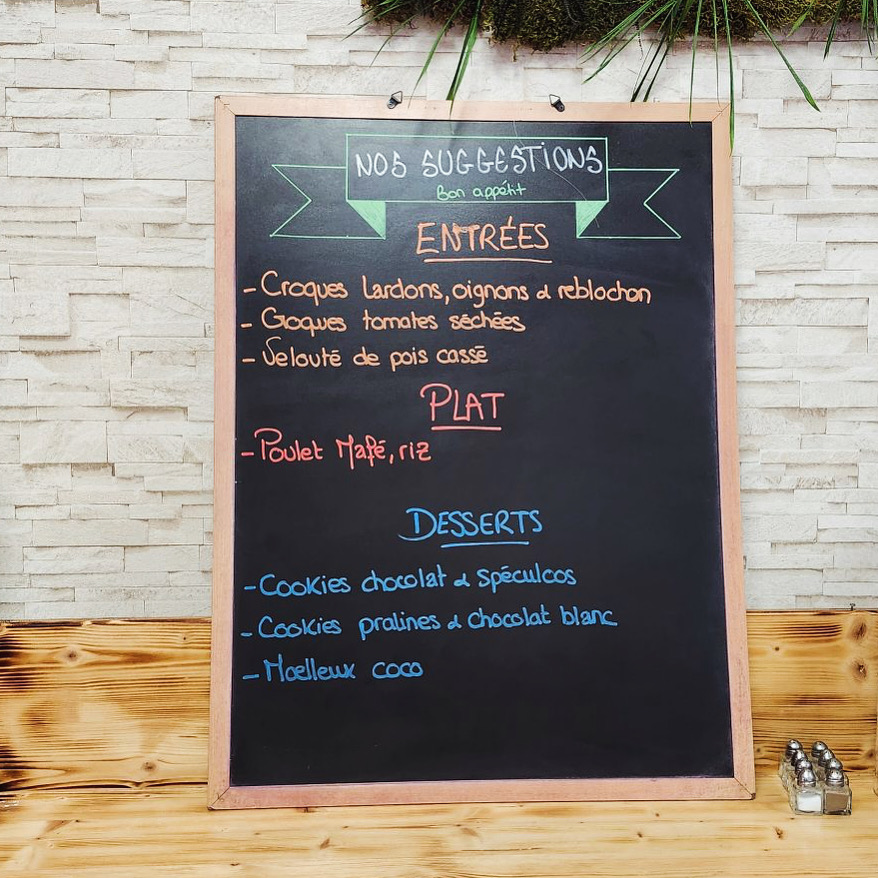 NOS SUGGESTIONS
Bon appétit
ENTRÉES
- Croques lardons, oignons & reblochon
- Croques tomates séchées
- Velouté de pois cassé
PLAT
- Poulet Mafé, riz
DESSERTS
- Cookies chocolat & spéculoos
- Cookies pralines & chocolat blanc
- Moelleux coco